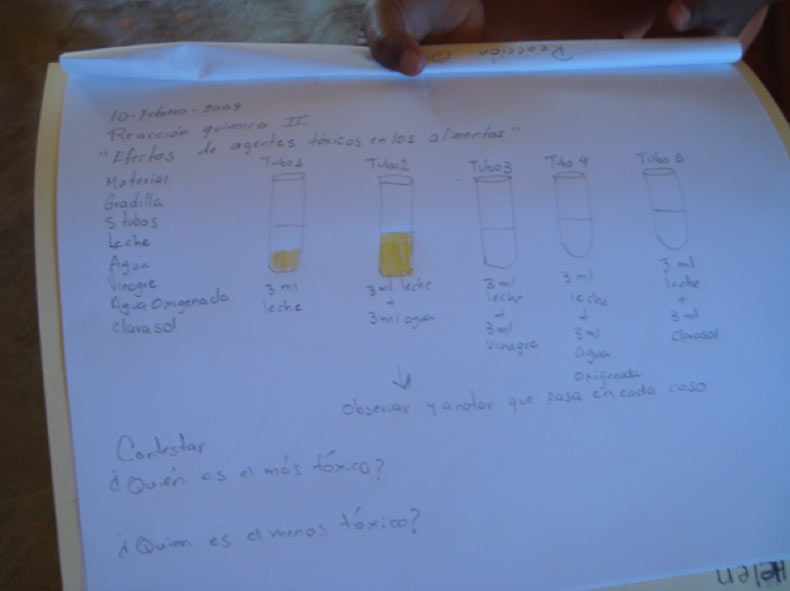 Reacción
10-Febrero-2009
Reacción química II
"Efectos de agentes tóxicos en los alimentos"
Material
Gradilla
5 tubos
Leche
Agua
Vinagre
Agua Oxigenada
Clarasol
Tubo 1
3 ml
leche
Tubo 2
3 ml leche
+
3 ml agua
Tubo 3
3 ml
leche
+
3 ml
Vinagre
Tubo 4
3 ml
leche
+
3 ml
agua
oxigenada
Tubo 5
3 ml
leche
+
3 ml
Clarasol
Observar y anotar que pasa en cada caso.
Contestar
¿Quién es el más tóxico?
¿Quien es el menos tóxico?
Helen